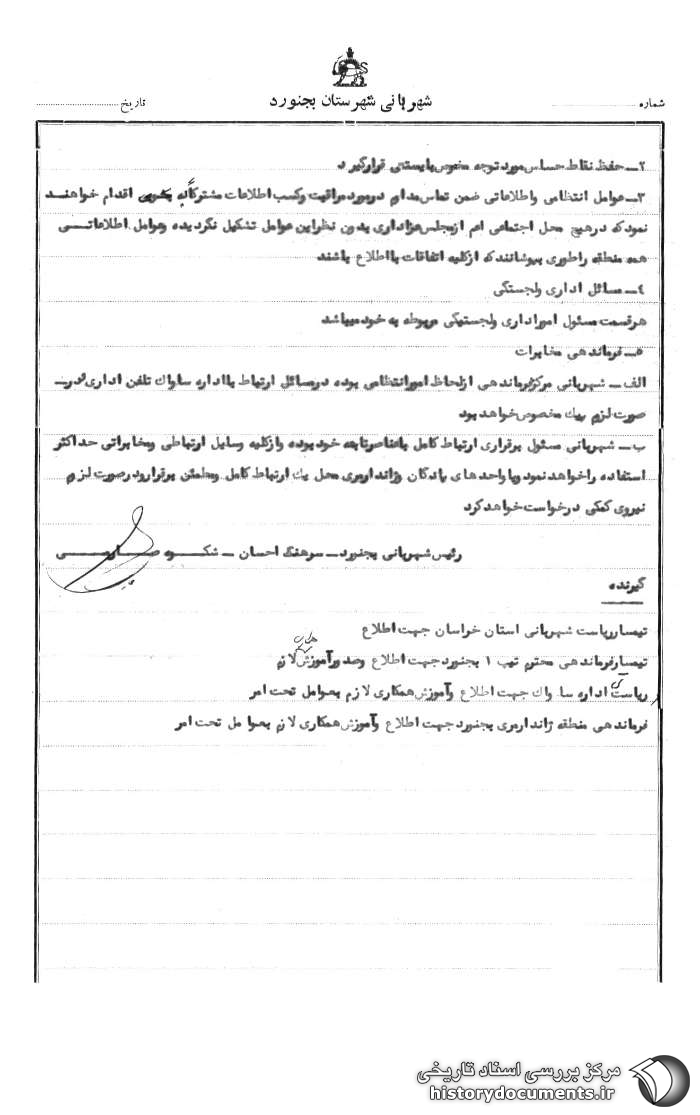 شهربانی شهرستان بجنورد
شماره
تاریخ
۲ــ حفظ نقاط حساس مورد توجه مخصوص بایستی قرارگیرد
۳ــ عوامل انتظامی واطلاعاتی ضمن تماس مداوم درمورد مراقبت وکسب اطلاعات مشترکاً اقدام خواهنــد
نمود که درهیچ محل اجتماعی اعم ازمجلس عزاداری بدون نظر این عوامل تشکیل نگردیده وعوامل اطلاعاتــی
همه منطقه راطوری بپوشانند که ازکلیه اتفاقات بااطلاع باشند
٤ــ مسائل اداری ولجستگی
هرقسمت مسئول اموراداری ولجستیگی مربوطه به خود میباشد
٥ــ فرماندهی مخابرات
الف ــ شهربانی مرکزفرماندهی ازلحاظ امورانتظامی بوده درمسائل ارتباط بااداره ساواك تلفن اداری ودرــ
صورت لزوم پیك مخصوص خواهد بود
ب ــ شهربانی مسئول برقراری ارتباط کامل باعناصرتابعه خود بوده وازکلیه وسایل ارتباطی ومخابراتی حداکثر
استفاده راخواهد نمود وبا واحدهای پادگان وژاندارمری محل یك ارتباط کامل ومطمئن برقرارودرصورت لزوم
نیروی کمکی درخواست خواهد کرد
رئیس شهربانی بجنورد ــ سرهنگ احسان ــ
گیرنده
تیمسارریاست شهربانی استان خراسان جهت اطلاع
تیمسارفرماندهی محترم تیپ ۱ بجنورد جهت اطلاع وصدورآموزش لازم
ریاست اداره ساواك جهت اطلاع وآموزش همکاری لازم بعوامل تحت امر
فرماندهی منطقه ژاندارمری بجنورد جهت اطلاع وآموزش همکاری لازم بعوامل تحت امر
مرکز بررسی اسناد تاریخی
historydocuments.ir